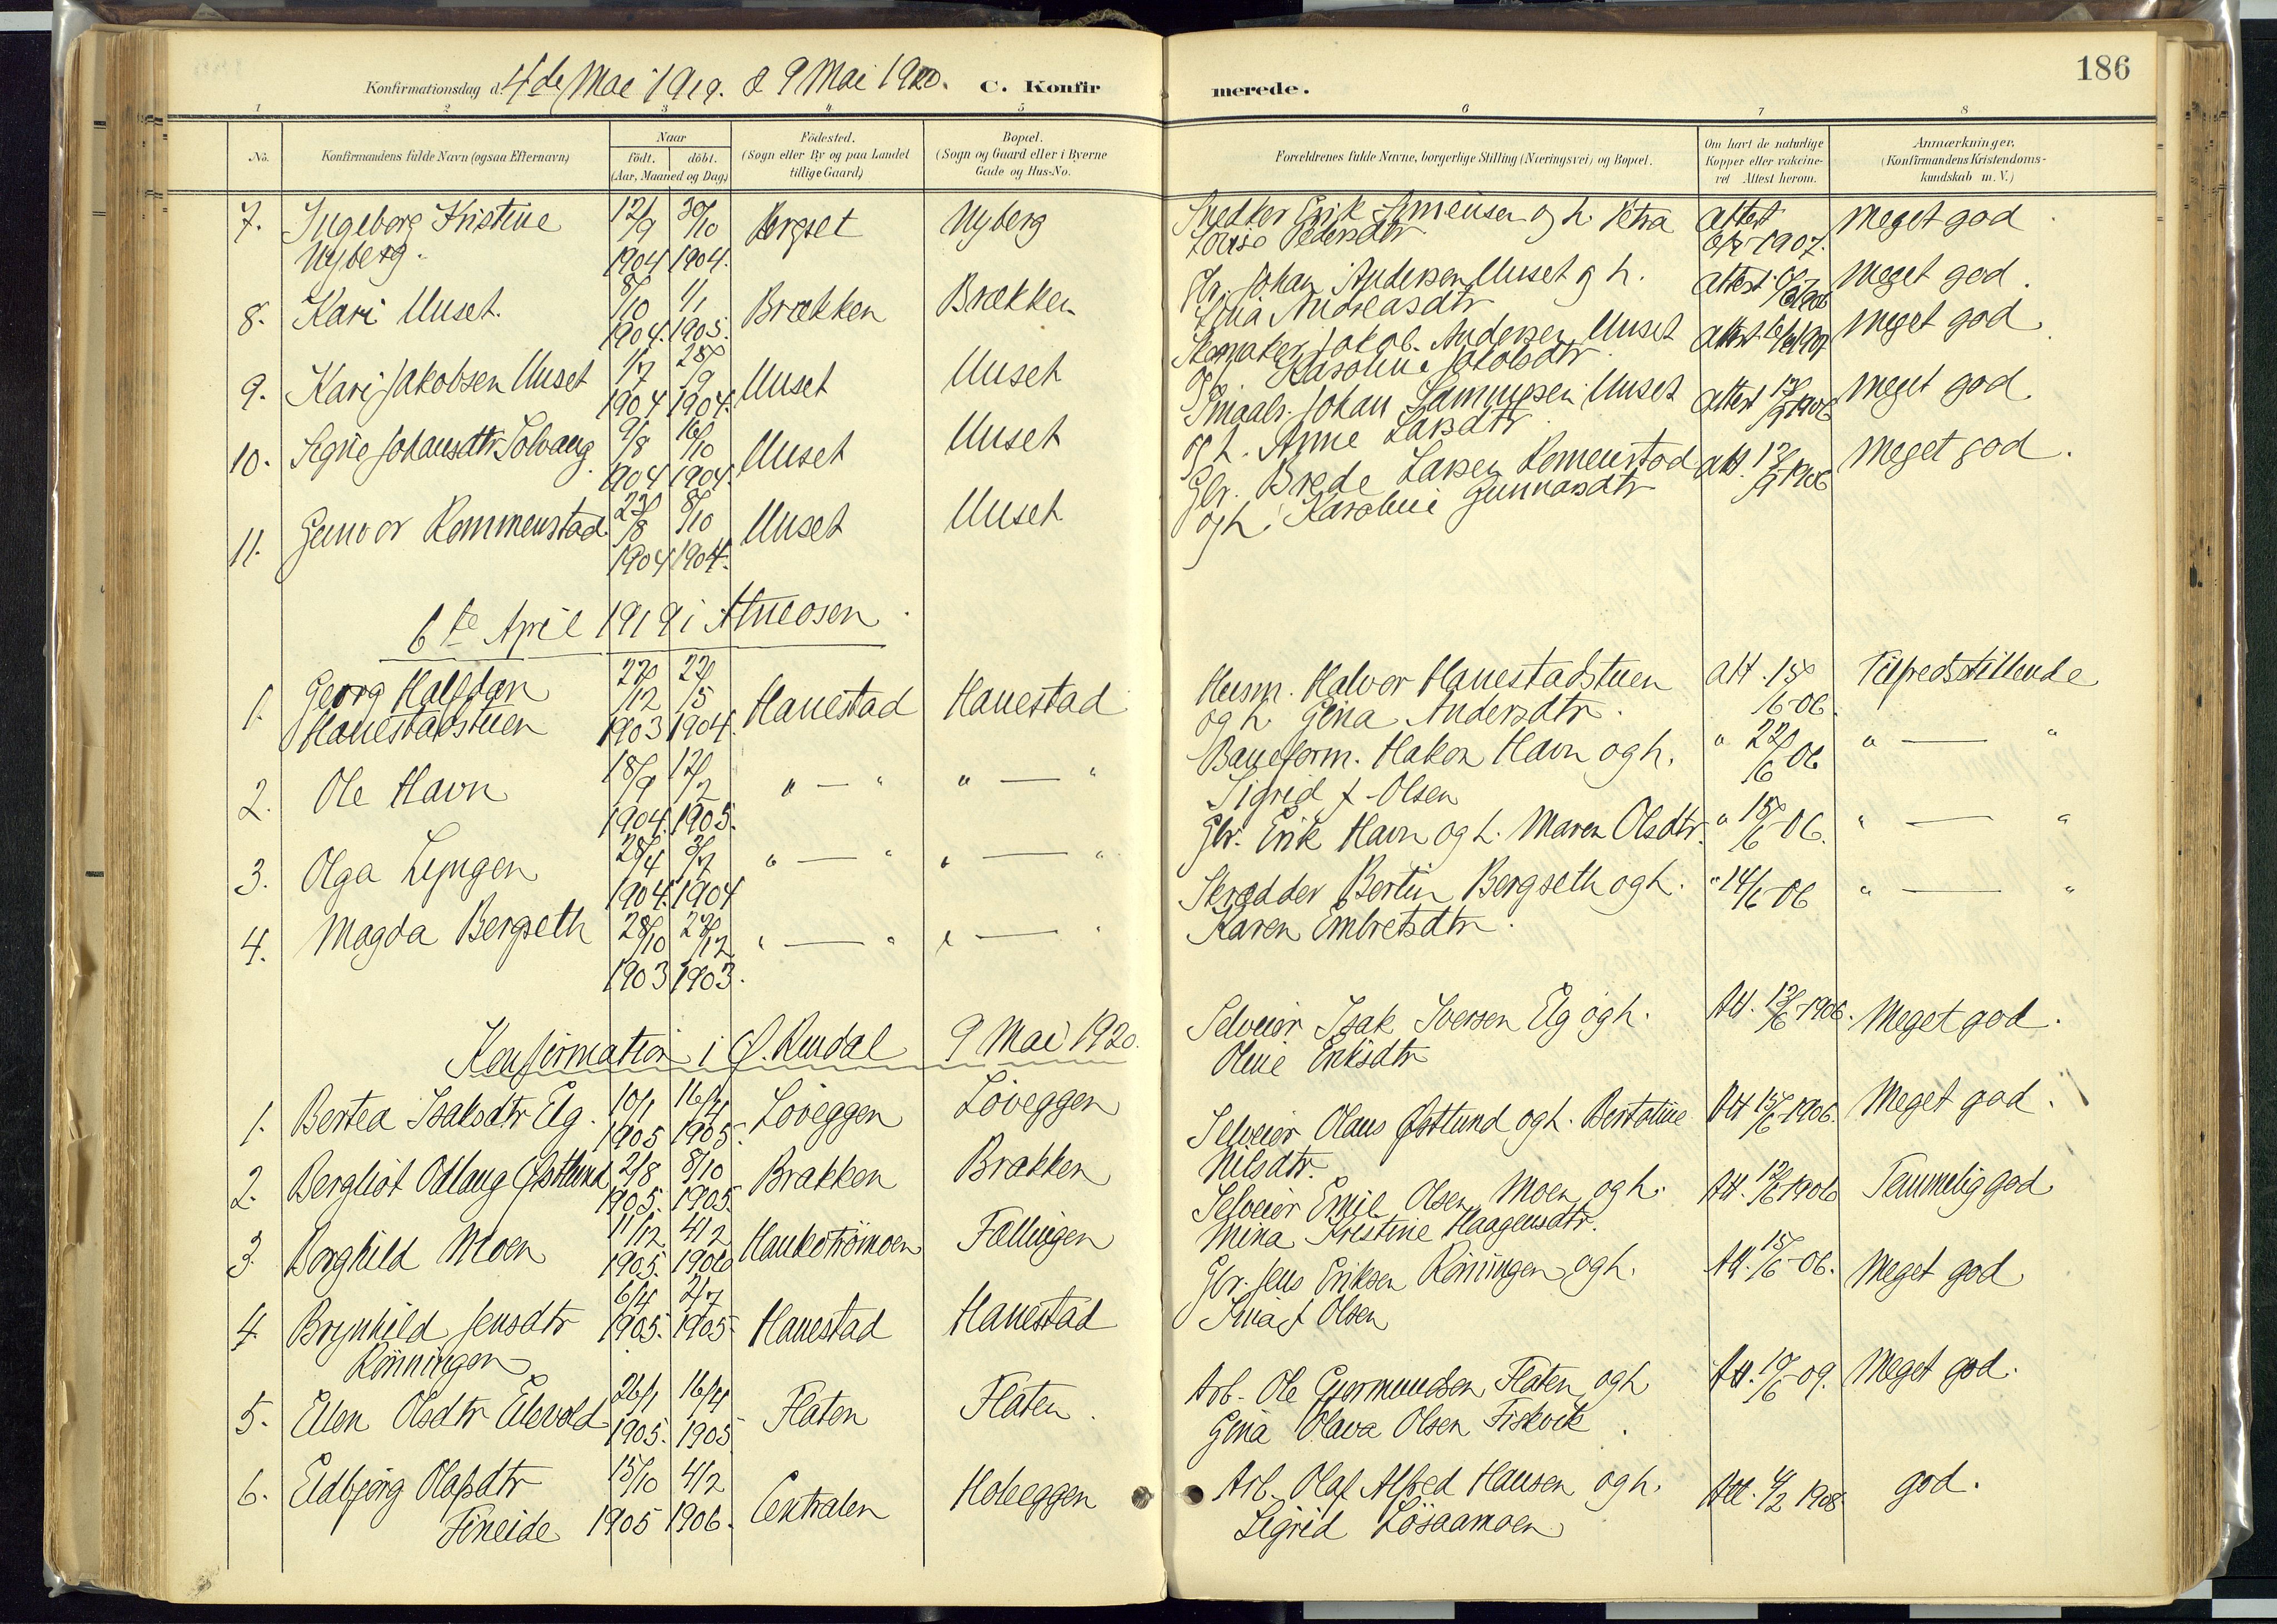 186
Konfirmationsdag d. 4de Mai 1919. & 9 Mai 1920. C. Konfirmerede.
1 2 3 4 5 6 7 8
No.
Konfirmandens fulde Navn (ogsaa Efternavn)
Naar
født. døbt.
(Aar, Maaned og Dag)
Födested.
(Sogn eller By og paa Landet
tillige Gaard)
Bopæl.
(Sogn og Gaard eller i Byerne
Gade og Hus-No.
Forældrenes fulde Navne, borgerlige Stilling (Næringsvei) og Bopæl.
Om havt de naturlige
Kopper eller vakcine-
ret Attest herom.
Anmærkninger.
(Konfirmandens Kristendoms-
kundskab m. V.)
7. Ingeborg Kristine 12/9 30/10 Bergset Nyberg Snedker Erik og h. Petra Attest Meget god
Nyberg. 1904 1904. Louise Pedersdtr 1907.
8. Kari Uuset. 8/10 1/1 Brækken Brækken Gbr. Johan Andersen Uuset og h. Attest Meget god.
1904. 1905. Andreasdtr
9. Kari Jakobsen Uuset 1/7 28/9 Uuset Uuset Skomaker Jakob Andersen Uuset Attest Meget god.
1904 1904. og h. Karoline Jakobsdtr.
10. Signe Johansdtr Solvang 9/8 16/10 Uuset Uuset Smaabr. Johan Uuset Attest Meget god.
1904 1904. og h. Anne Larsdtr.
11. Gunvor Rommenstad 23/8 8/10 Uuset Uuset Gbr. Brede Larsen Romenstad Att. Meget god.
1904 1904. og h. Karoline Gunnarsdtr
6te April 1919 i Atneosen.
1. Georg Halfdan 27/12 22/5 Hanestad Hanestad Husm. Halvor Hanestadstuen Att. 15/6-06. Tilfredsstillende
Hanestadstuen 1903 1904. og h. Gina Andersdtr.
2. Ole Havn 18/9 12/2 " — " " — " Baneform. Hakon Havn og h. " 22/6 06 " — "
1904. 1905. Sigrid f. Olsen
3. Olga Lyngen 28/4 3/7 " — " " — " Gbr. Erik Havn og h. Maren Olsdtr. " 15/6-06. " — "
1904. 1904
4. Magda Bergseth 28/10 29/12 " — " " — " Skrædder Bertin Bergseth og h. " 14/6-06 " — "
1903 1903. Karen Embretsdtr.
Konfirmation i Ø. Rendal 9 Mai 1920.
1. Bertea Isaksdtr Elg. 10/1 16/4 Löveggen Löveggen Selveier Isak Iversen Elg og h. Att. 12/6-1906. Meget god.
1905 1905. Oline Eriksdtr
2. Bergliot Odlaug Østlund 2/8 8/10 Brækken Brækken Selveier Olaus Østlund og h. Bertatine Att 15/6-1906. Meget god.
1905. 1905. Nilsdtr.
3. Borghild Moen 11/12 4/2 Haukströmoen Fællingen Selveier Emil Olsen Moen og h. Att. 12/6 1906 Temmelig god
1905. 1906 Mina Kristine Haagensdtr.
4. Brynhild Jensdtr 6/4 2/7 Hanestad Hanestad Gbr. Jens Eriksen Rönningen og h. Att. 15/6-06. Meget god
Rönningen 1905. 1905. f. Olsen
5. Ellen Olsdtr Elvevold 26/1 16/4 Flaten Flaten. Arb. Ole Flaten og h. Att. 10/6-09. Meget god.
1905. 1905 Gina Olava Olsen Fiskvik.
6. Eldbjørg Olafsdtr 15/10 4/2 Centralen Holeggen Arb. Olaf Alfred Hansen og h. Att. 4/2 1908 god.
Fineide 1905 1906. Sigrid Lösaamoen